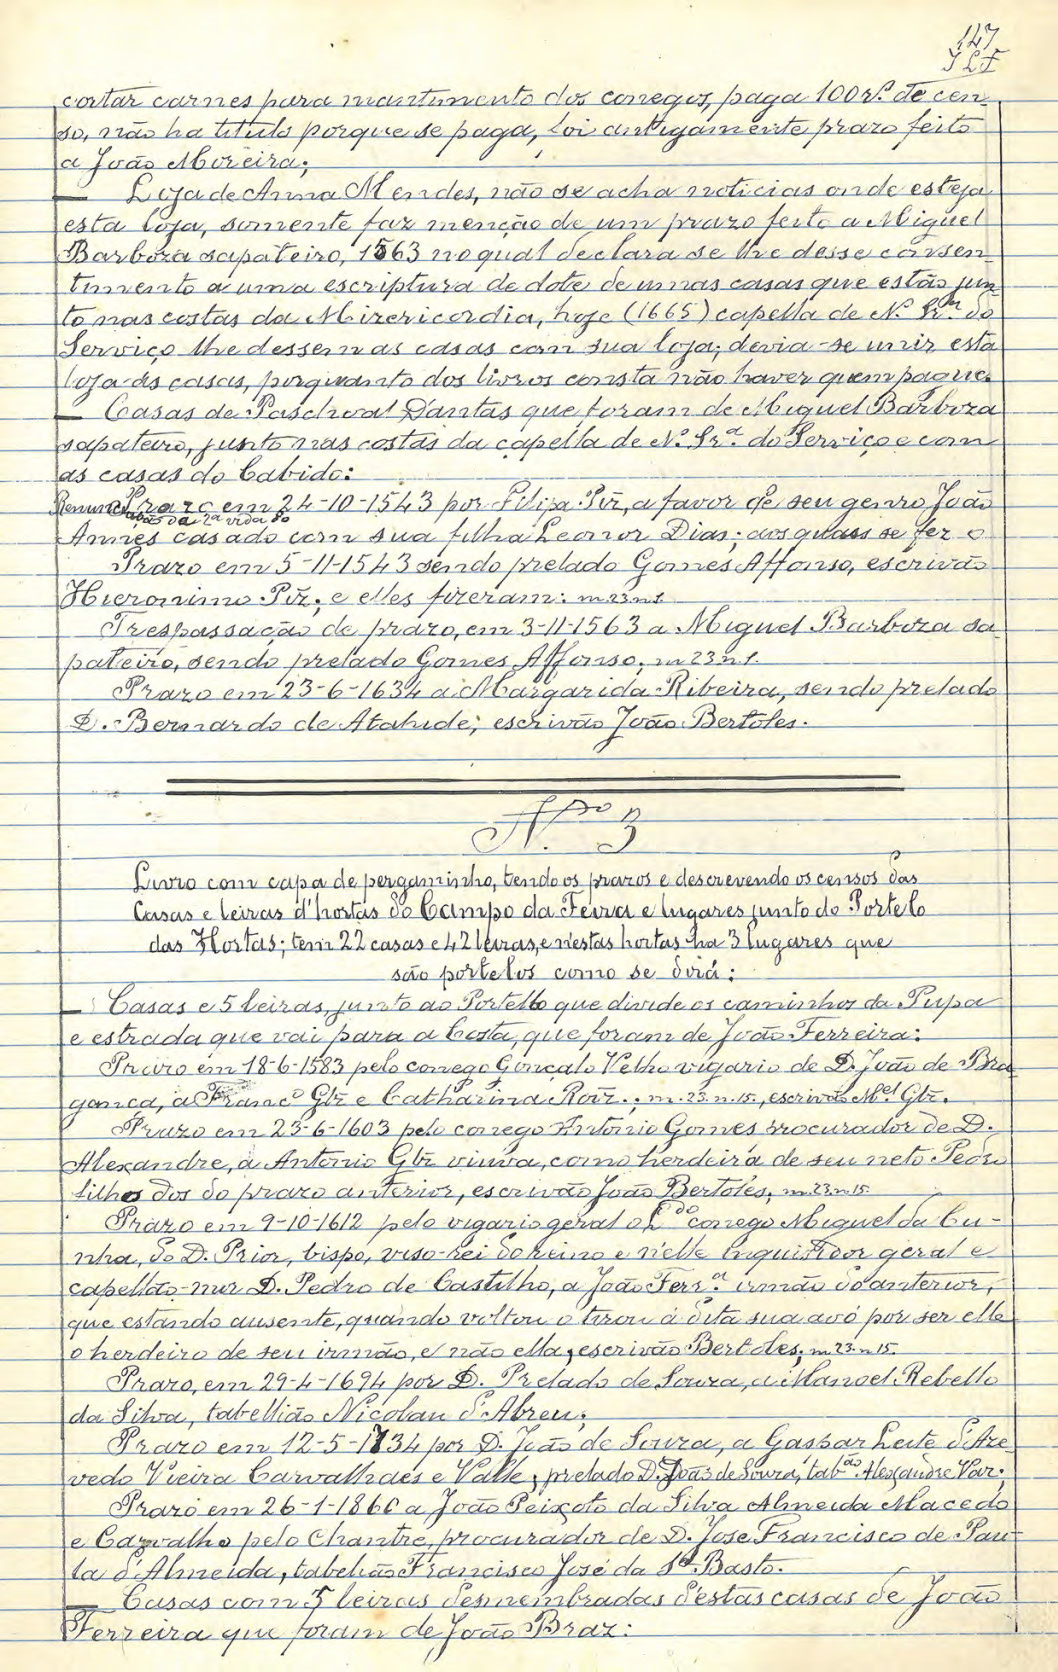 147
cortar carnes para mantimento dos conegos, paga 100 rs. de cen-
so, não ha titulo porque se paga, foi antigamente prazo feito
a João Moreira;
— Loja de Anna Mendes, não se acha noticias onde esteja
esta loja, somente faz menção de um prazo feito a Miguel
Barboza sapateiro, 1563 no qual declara se lhe desse consen-
timento a uma escriptura de dote de umas casas que estão jun-
to nas costas da Mizericordia, hoje (1665) capella de N.ª Sr.ª do
Serviço lhe dessem as casas com sua loja; devia-se unir esta
loja ás casas, porquanto dos livros consta não haver quem pague.
— Casas de Paschoal Dantas que foram de Miguel Barboza
sapateiro, junto nas costas da capella de N.ª Sr.ª do Serviço e com
as casas do Cabido:
Prazo em 24-10-1543 por Filipa Piz, a favor de seu genro João
Annes casado com sua filha Leonor Dias; aos quaes se fez o
Prazo em 5-11-1543 sendo prelado Gomes Affonso, escrivão
Hieronimo Piz; e elles fizeram: m 23 n 1
Trespassação de prazo, em 3-11-1563 a Miguel Barboza sa-
pateiro, sendo prelado Gomes Affonso; m 23 n 1.
Prazo em 23-6-1634 a Margarida Ribeira, sendo prelado
D. Bernardo de Atahide; escrivão João Bertoles.
N.º 3
Livro com capa de pergaminho, tendo os prazos e descrevendo os censos das
Casas e leiras d'hortas do Campo da Feira e lugares junto do Portelo
das Hortas; tem 22 casas e 42 leiras, e n'estas hortas ha 3 lugares que
são portelos como se dirá:
— Casas e 5 leiras, junto ao Portello que divide os caminhos da Pupa
e estrada que vai para a Costa, que foram de João Ferreira:
Prazo em 18-6-1583 pelo conego Gonçalo Velho vigario de D. João de Bra-
gança, a Franc.º Glz e Catharina Roiz.; m. 23. n. 15., escrivão M.el Glz.
Prazo em 23-6-1603 pelo conego Antonio Gomes procurador de D.
Alexandre, a Antonio Glz viuva, como herdeira de seu neto Pedro
filho dos do prazo anterior, escrivão João Bertoles; m. 23. n. 15
Prazo em 9-10-1612 pelo vigario geral o L.do conego Miguel da Cu-
nha, do D. Prior, bispo, viso-rei do reino e n'elle inquisidor geral e
capellão-mor D. Pedro de Castilho, a João Ferr.ª irmão do anterior,
que estando ausente, quando voltou o tirou á dita sua avó por ser elle
o herdeiro de seu irmão, e não ella; escrivão Bertoles; m. 23. n. 15.
Prazo, em 29-4-1694 por D. Prelado de Souza, a Manoel Rebello
da Silva, tabellião Nicolau d'Abreu;
Prazo em 12-5-1734 por D. João de Souza, a Gaspar Leite d'Aze-
vedo Vieira Carvalhaes e Valle; prelado D. João de Souza, tab.ão Alexandre Var.
Prazo em 26-1-1860 a João Peixoto da Silva Almeida Macedo
e Carvalho pelo Chantre, procurador de D. Jose Francisco de Pau-
la d'Almeida, tabelião Francisco José da S.ª Basto.
— Casas com 5 leiras desmembradas d'estas casas de João
Ferreira que foram de João Braz: